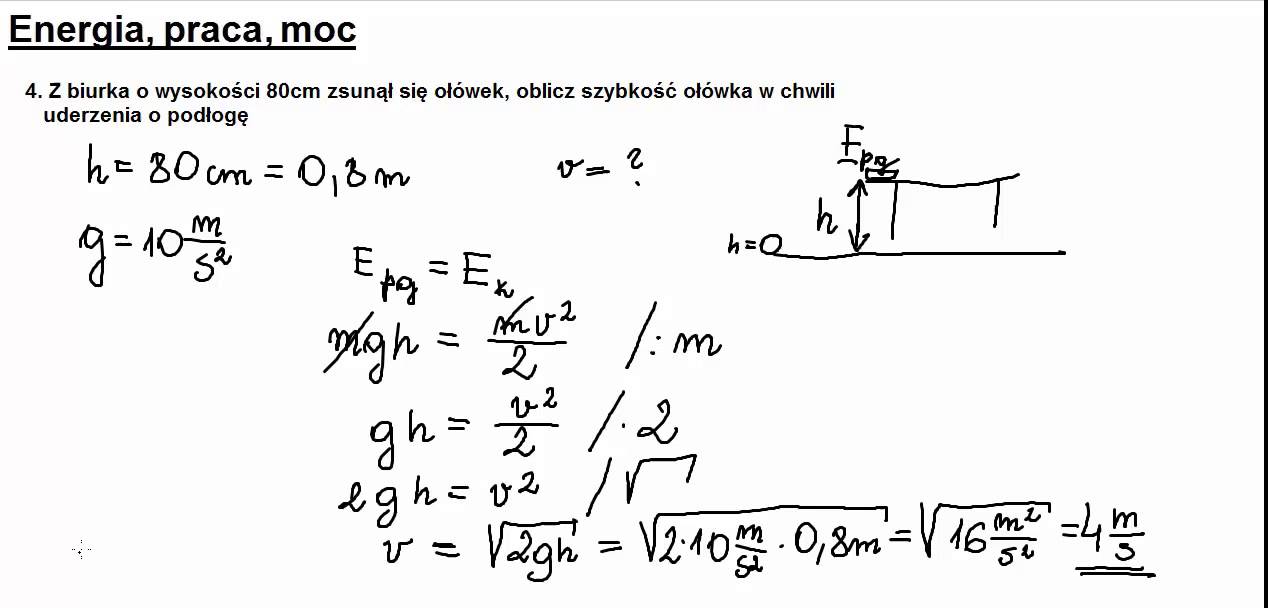 Energia, praca, moc
4. Z biurka o wysokości 80cm zsunął się ołówek, oblicz szybkość ołówka w chwili
uderzenia o podłogę
h = 80cm = 0,8m
v = ?
g = 10 m/s²
E_pg
h
h=0
E_pg = E_k
mgh = mv²/2 /: m
gh = v²/2 /· 2
2gh = v² /√
v = √2gh = √2·10 m/s² · 0,8m = √16 m²/s² = 4 m/s